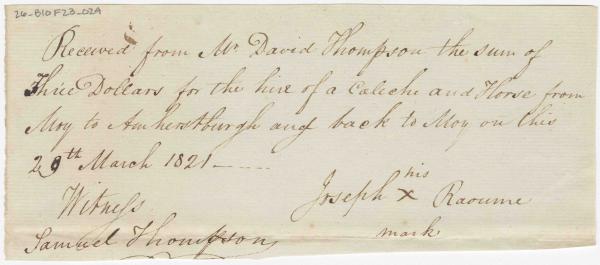 26-B10F23-029
Received from Mr David Thompson the sum of
Three Dollars for the hire of a Caleche and Horse from
Moy to Amherstburgh and back to Moy on this
29th March 1821
Witness
his
Joseph x Raoume
mark
Samuel Thompson